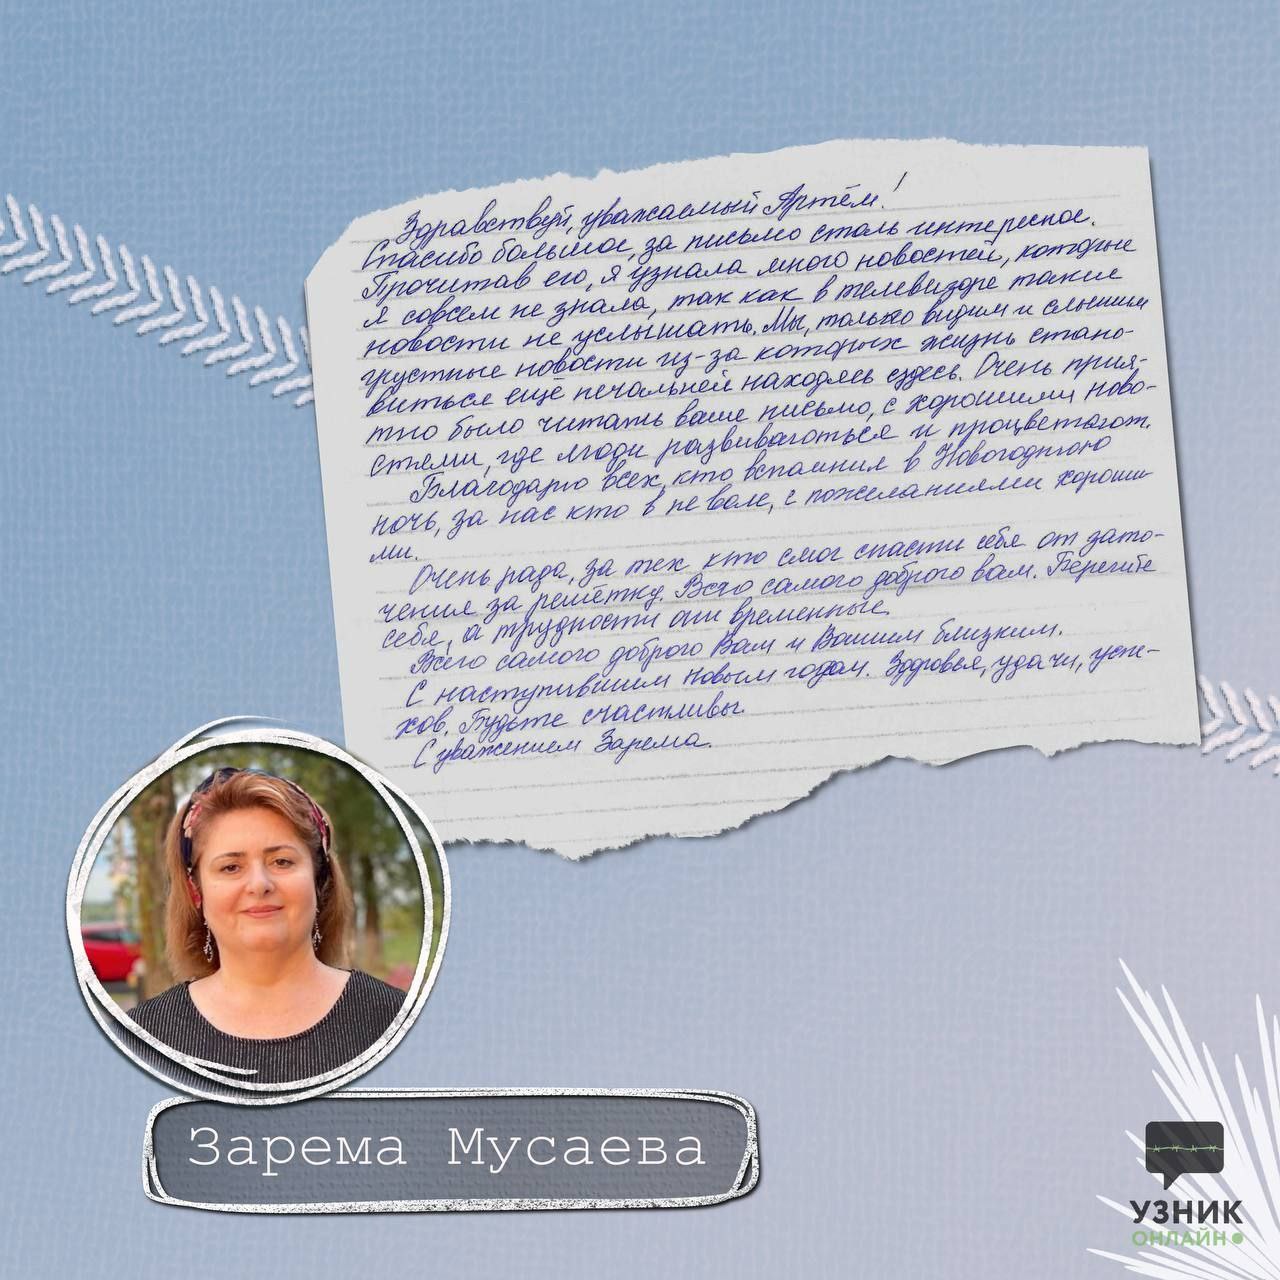 Здравствуй, уважаемый Артём!
Спасибо большое, за письмо столь интересное.
Прочитав его, я узнала много новостей, которые
я совсем не знала, так как в телевизоре такие
новости не услышать. Мы, только видим и слышим
грустные новости из-за которых жизнь стано-
виться ещё печальней находясь здесь. Очень прия-
тно было читать ваше письмо, с хорошими ново-
стями, где люди развиваються и процветают.
Благодарю всех, кто вспомнил в Новогоднюю
ночь, за нас кто в неволе, с пожеланиями хороши-
ми.
Очень рада, за тех кто смог спасти себя от зато-
чения за решётку. Всего самого доброго вам. Берегите
себя, а трудности они временные.
Всего самого доброго Вам и Вашим близким.
С наступившим новым годом. Здоровья, удачи, успе-
хов. Будьте счастливы.
С уважением Зарема.
Зарема Мусаева
УЗНИК
ОНЛАЙН